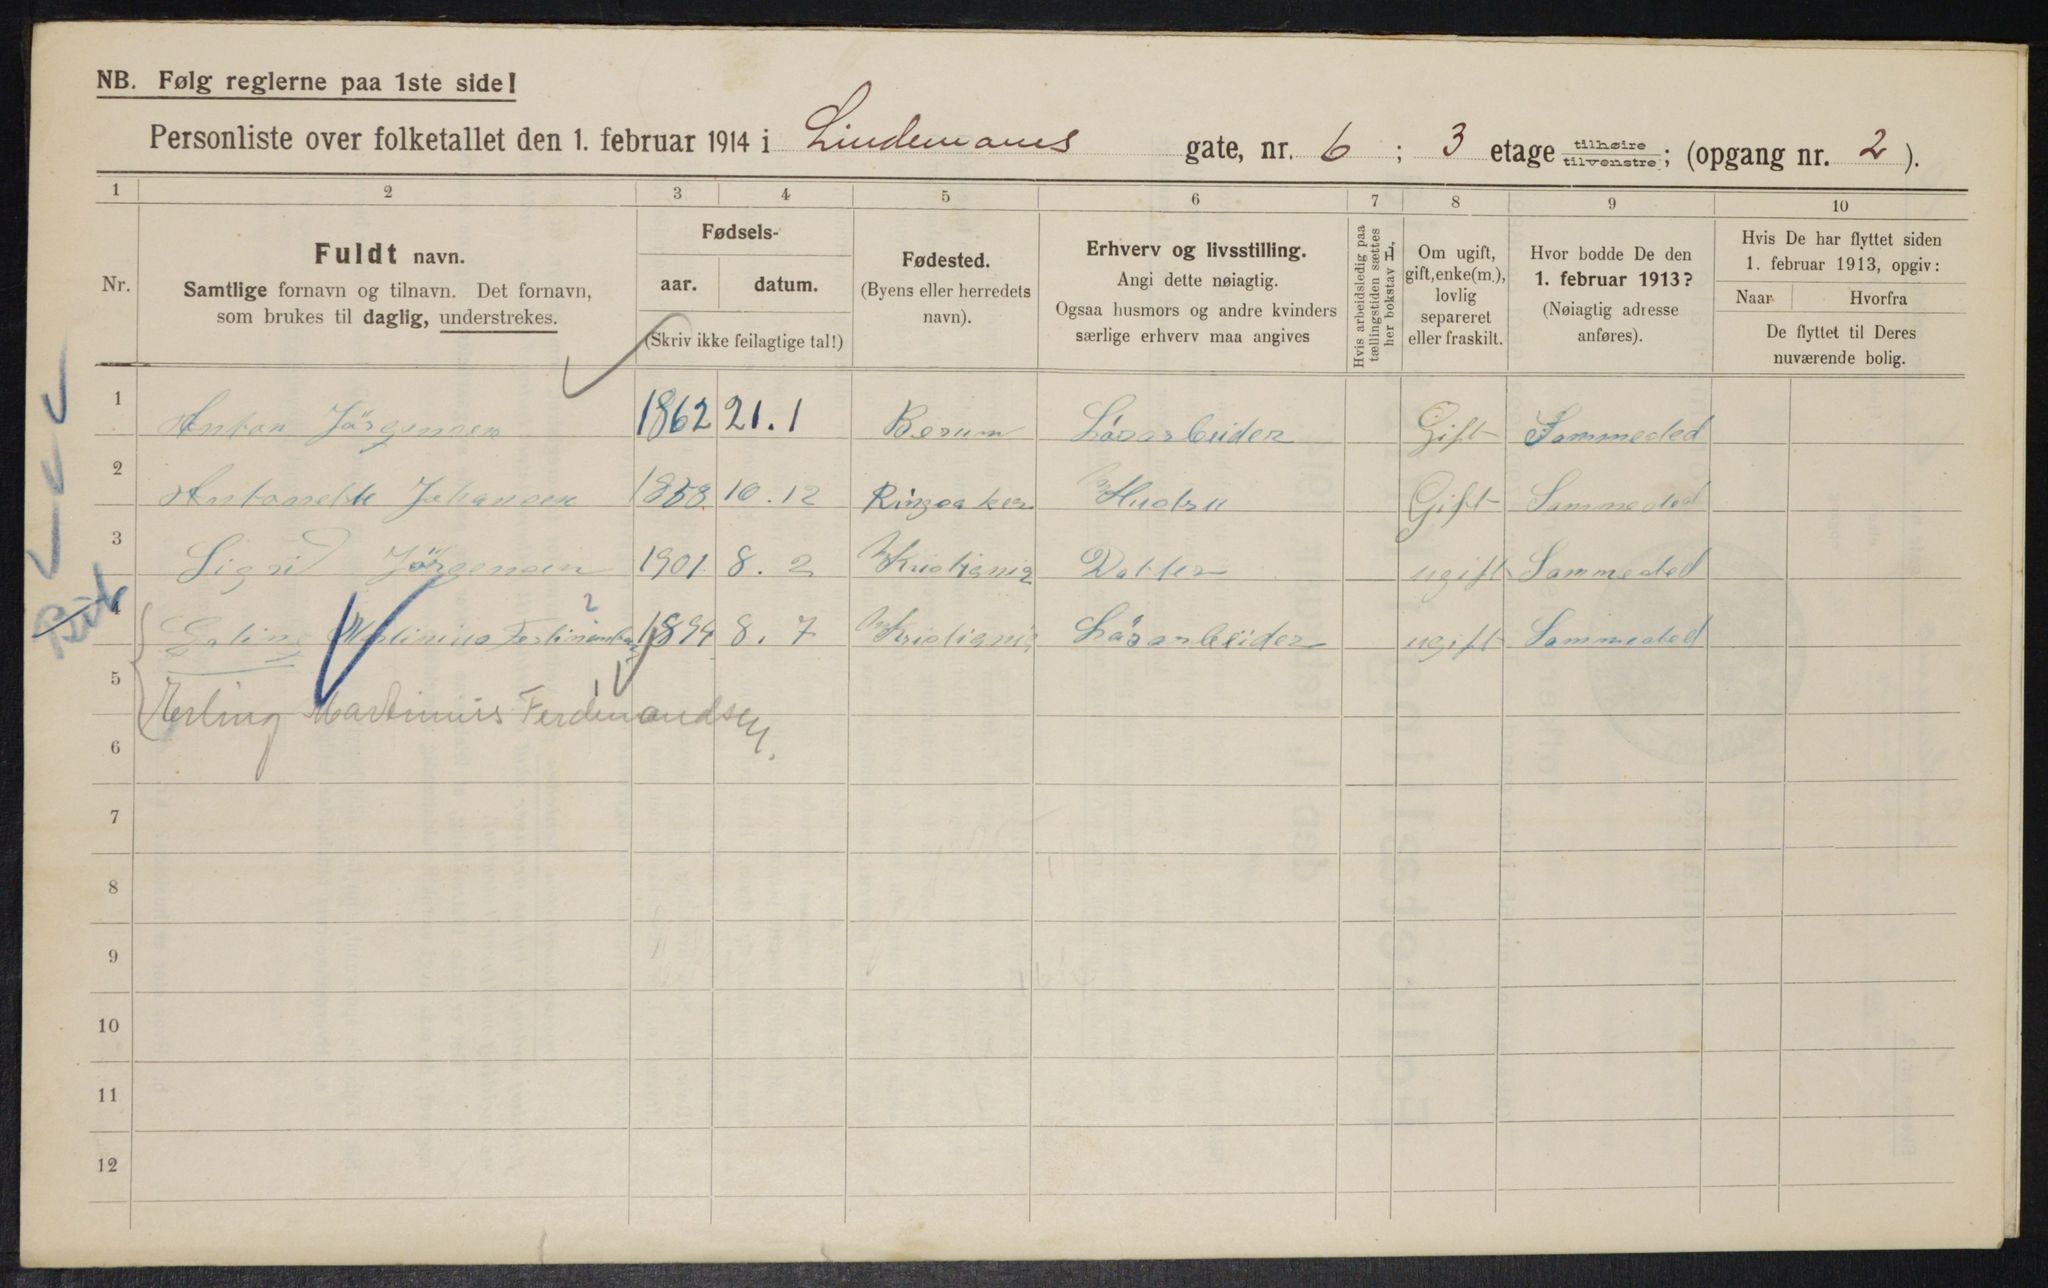 NB. Følg reglerne paa 1ste side!
Personliste over folketallet den 1. februar 1914 i Lindemans gate, nr. 6 ; 3 etage tilhøire tilvenstre ; (opgang nr. 2 ).
1 2 3 4 5 6 7 8 9 10
Nr.
Fuldt navn.
Samtlige fornavn og tilnavn. Det fornavn,
som brukes til daglig, understrekes.
Fødsels-
aar. datum.
(Skriv ikke feilagtige tal!)
Fødested.
(Byens eller herredets
navn).
Erhverv og livsstilling.
Angi dette nøiagtig.
Ogsaa husmors og andre kvinders
særlige erhverv maa angives
Hvis arbeidsledig paa
tællingstiden sættes
her bokstav L,
Om ugift,
gift, enke(m.),
lovlig
separeret
eller fraskilt.
Hvor bodde De den
1. februar 1913?
(Nøiagtig adresse
anføres).
Hvis De har flyttet siden
1. februar 1913, opgiv:
Naar Hvorfra
De flyttet til Deres
nuværende bolig.
1 Anton Jörgensen 1862 21.1 Berum Lösarbeider Gift Sammeded
2 Antonette Johansen 1858 10.12 Ringsaker Hustru Gift Sammeded
3 Sigrid Jörgensen 1901 8.2 Kristiania Datter ugift Sammeded
4 Martinius 1894 8.7 Kristiania Lösarbeider ugift Sammeded
5 Herling Martinius Ferdinandsen.
6
7
8
9
10
11
12